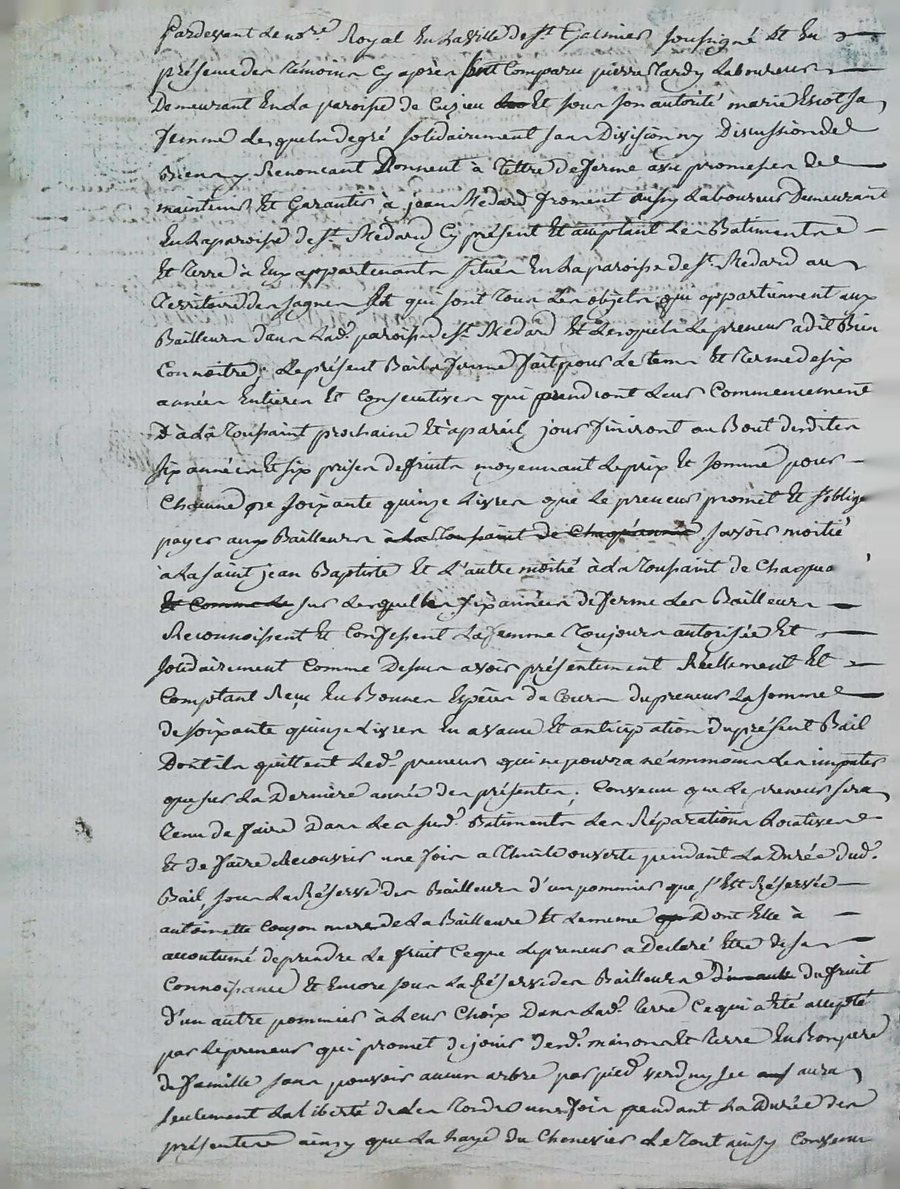 Pardevant le no.re Royal En la ville de St Galmier soussigné Et En
présence des témoins cy après sont Comparu pierre Tardy Laboureur
Demeurant En la paroisse de Cuzieu Et sous son autorité marie Escot sa
femme Lesquels de gré solidairement sans Division ny Discussion de
Biens y Renoncant Donnent à tittre de ferme avec promesses de
maintenir Et Garantir à jean Medard froment aussy Laboureur Demeurant
En la paroisse de St. Medard Cy présent Et acceptant Les Batiments
Et terre à Eux appartenants situés En la paroisse de St. Medard au
territoire des sagnes Et qui sont tous Les objets qui appartiennent aux
Bailleurs dans Lad. paroisse de St. Medard Et Lesquels Le preneur a dit Bien
Connoitre; Le présent Bail a ferme fait pour Le tems Et terme de six
années Entieres Et Consecutives qui prendront Leur Commencement
D'à La toussaint prochaine Et à pareil jour finiront au Bout desdites
six années Et six prises de fruits moyennant Le prix Et somme pour
Chacune de soixante quinze Livres que Le preneur promet Et s'oblige
payer aux Bailleurs à La Toussaint de Chaque année savoir moitié
à La saint jean Baptiste Et L'autre moitié à La toussaint de Chaque
Et Comme Le sur Lesquelles six années de ferme Les Bailleurs
Reconnoissent Et Confessent La femme toujours autorisée Et
solidairement Comme Dessus avoir présentement Reellement Et
Comptant Reçu En Bonnes Espèces de Cours du preneur La somme
de soixante quinze Livres En avance Et anticipation du présent Bail
Dont ils quittent Led. preneur qui ne pourra néammoins Les imputer
que sur La Dernière année des présentes; Convenu que Le preneur sera
tenu de faire Dans Les susd. Batiments Les Réparations Locatives
Et de faire Recouvrir une fois a thuile ouverte pendant La Durée dud.
Bail, sous La Réserve des Bailleurs d'un pommier que s'Est Réservée
antoinette Coujon mere de La Bailleure Et Le meme Dont Elle à
accoutumé de prendre Le fruit Ce que Le preneur a Declaré Etre de sa
Connoissance Et Encore sous La Réserve des Bailleurs du fruit
D'un autre pommier à Leur Choix Dans Lad. terre Ce qui a Eté accepté
par Le preneur qui promet de jouir desd. maison Et terre En Bon pere
de famille sans pouvoir aucun arbre par pied verd ny sec aura
seulement La Liberté de Les tondre une fois pendant La Durée des
présentes ainsy que La haye du Chenevier Le tout ainsy Convenu